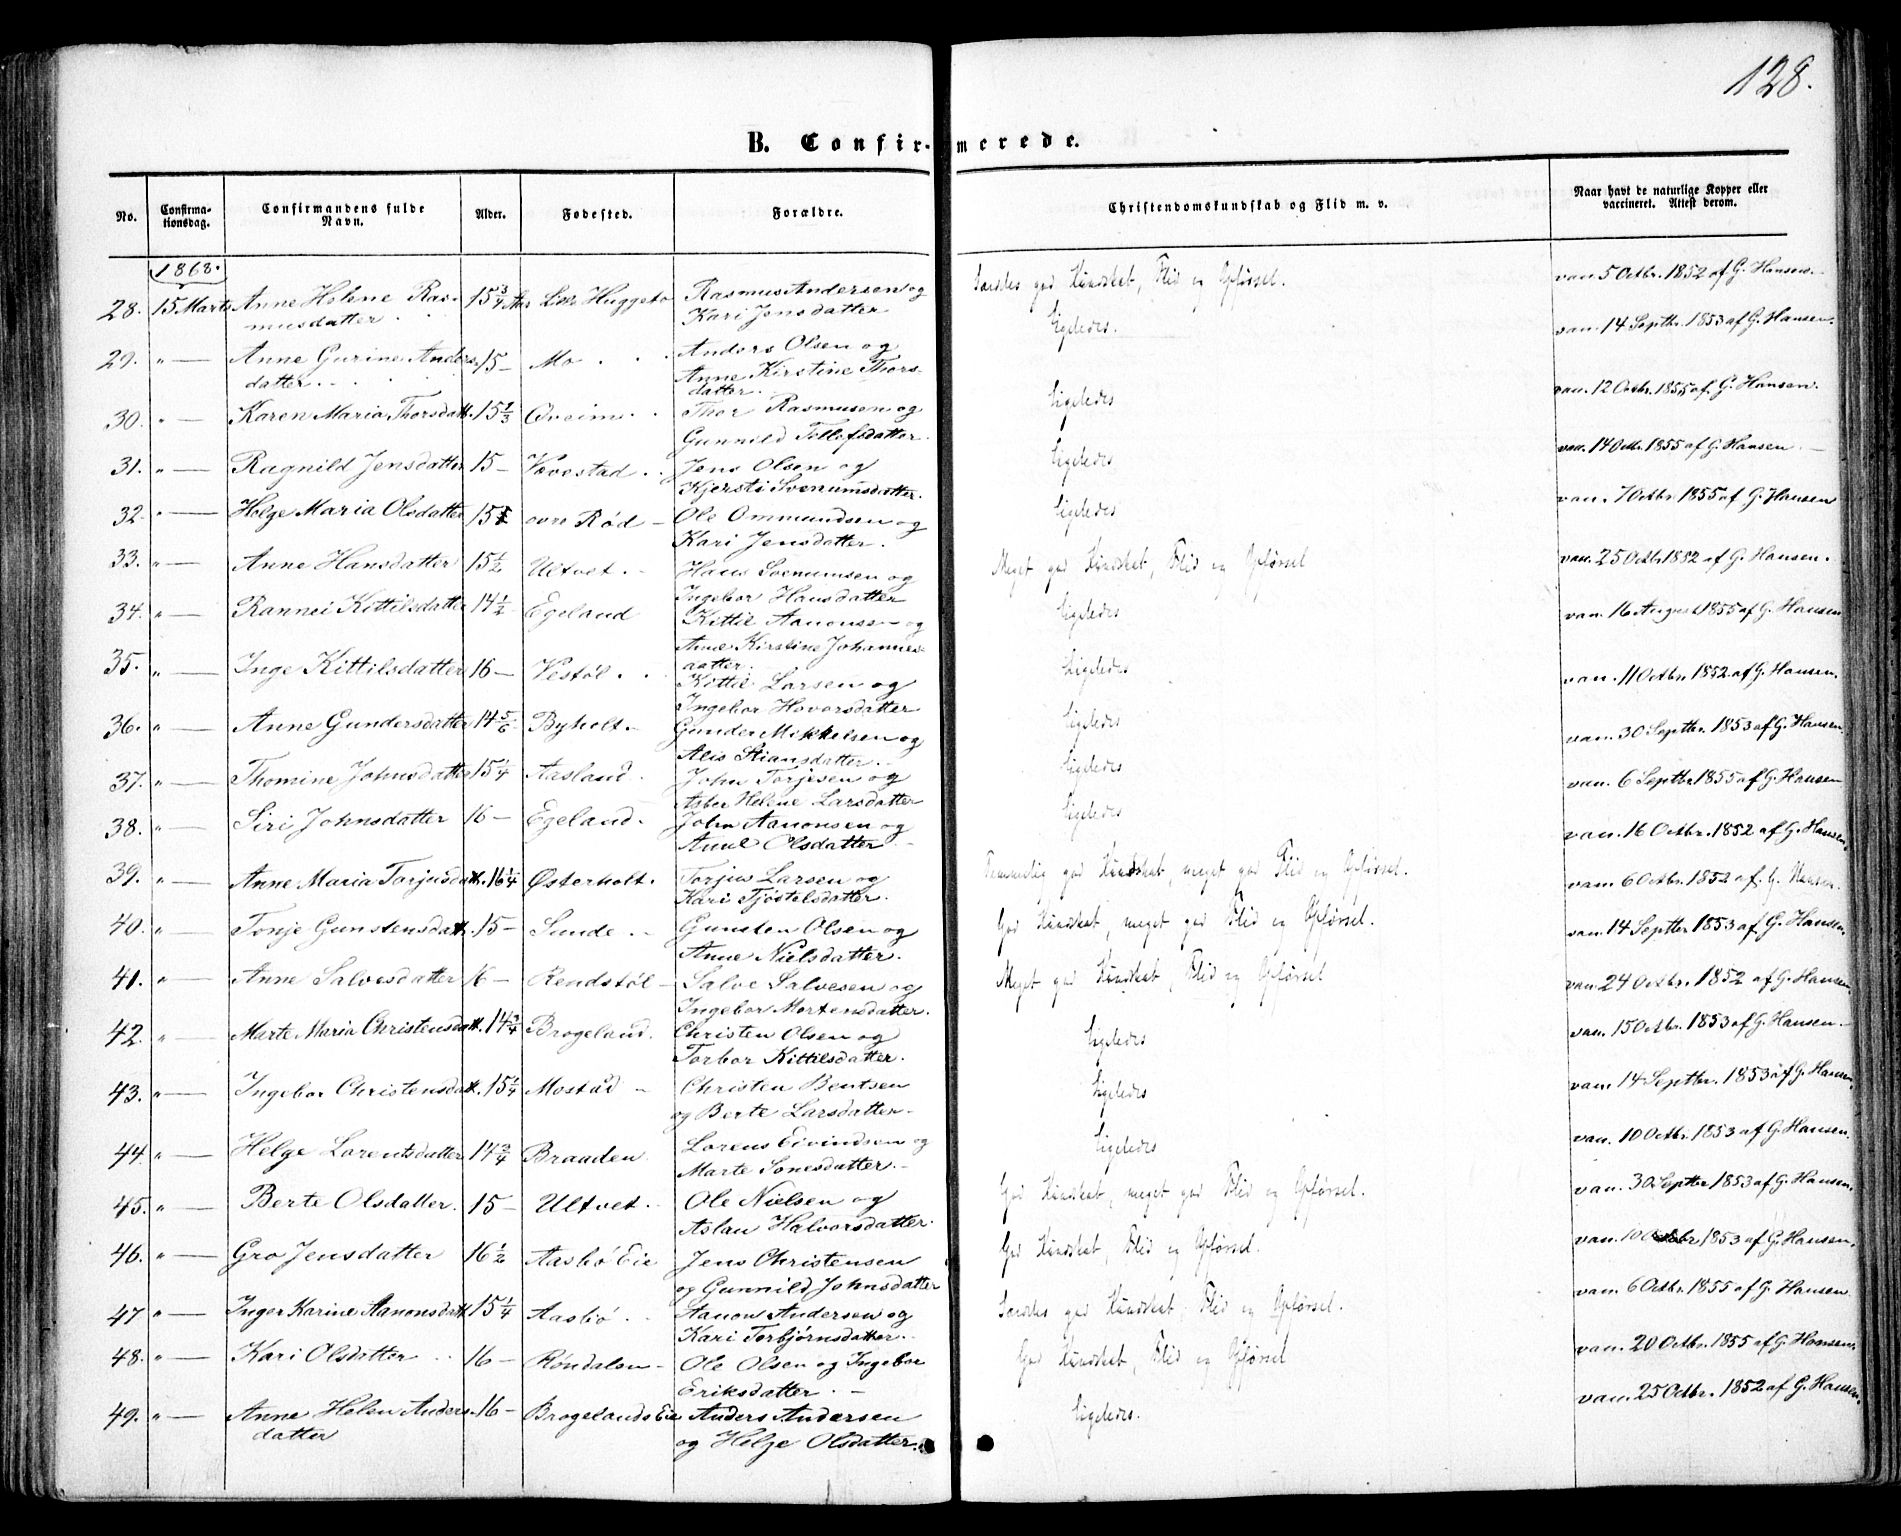 128.
B. Confirmerede.
No. Confirmationsdag. Confirmandens fulde Navn. Alder. Fødested. Forældre. Christendomskundskab og Flid m. v. Naar havt de naturlige Kopper eller vaccineret. Attest derom.
1868.
28. 15 Marts Anne Helene Ras- 15 3/4 Aar Lille Huggebo Rasmus Andersen og Særdeles god Kundskab, Flid og Opførsel. vac. 5 Octbr. 1852 af G. Hansen.
musdatter. Kari Jensdatter
29. " — Anne Gurine Anders- 15 – Mo Anders Olsen og Ligeledes. vac. 14 Septbr. 1853 af G. Hansen.
datter. Anne Kirstine Thors-
datter.
30. " — Karen Maria Thorsdatt. 15 2/3 Øveim. Thor Rasmusen og Ligeledes vac. 12 Octbr. 1855 af G. Hansen.
Gunnild Tellefsdatter.
31. " — Ragnild Jensdatter 15 – Vævestad. Jens Olsen og Ligeledes vac. 14 Octbr. 1855 af G. Hansen.
Kjersti Svenumsdatter.
32. " — Helge Maria Olsdatter 15 øvre Rød – Ole Ommundsen og Ligeledes vac. 7 Octbr. 1855 af G. Hansen
Kari Jensdatter.
33. " — Anne Hansdatter 15 1/2 Ultvet. – Hans Svenumsen og Meget god Kundskab, Flid og Opførsel vac. 25 Octbr. 1852 af G. Hansen.
Ingebor Hansdatter
34. " — Rannei Kittilsdatter 14 1/2 Egeland Kittil Aanonse– og Ligeledes vac. 16 August 1855 af G. Hansen
Anne Kirstine Johannes-
datter.
35. " — Inge Kittilsdatter 16 – Vestøl. Kittil Larsen og Ligeledes vac. 11 Octbr. 1852 af G. Hansen.
Ingebor Hovorsdatter
36. " — Anne Gundersdatter 14 5/6 Byholt. – Gunder Mikkelsen og Ligeledes vac. 30 Septbr. 1853 af G. Hansen.
Alis Stiansdatter.
37. " — Thomine Johnsdatter 15 1/4 Aasland. John Torjesen og Ligeledes vac. 6 Septbr. 1855 af G. Hansen
Asber Helene Larsdatter
38. " — Siri Johnsdatter 16 – Egeland. John Aanonsen og Ligeledes vac. 16 Octbr. 1852 af G. Hansen.
Anne Olsdatter
39. " — Anne Maria Torjusdatt. 16 1/4 Østerholt. Torjus Larsen og Temmelig god Kundskab, meget god Flid og Opførsel. vac. 6 Octbr. 1852 af G. Hansen.
Kari Tjøstelsdatter.
40. " — Tonje Gunstensdatt. 15 – Sunde. Gunsten Olsen og God Kundskab, meget god Flid og Opførsel. vac. 14 Septbr. 1853 af G. Hansen.
Anne Nielsdatter.
41. " — Anne Salvesdatter 16 – Rendstøl – Salve Salvesen og Meget god Kundskab, Flid og Opførsel vac. 24 Octbr. 1852 af G. Hansen.
Ingebor Mortensdatter.
42. " — Marte Maria Christensdatt. 14 3/4 Brogeland. Christen Olsen og Ligeledes vac. 15 Octbr. 1853 af G. Hansen.
Torbor Kittilsdatter.
43. " — Ingebor Christensdatt. 15 1/4 Mostad – Christen Bentsen Ligeledes vac. 14 Septbr. 1853 af G. Hansen.
og Berte Larsdatter.
44. " — Helge Lorentsdatter 14 3/4 Braaden. Lorens Eivindsen og Ligeledes vac. 10 Octbr. 1853 af G. Hansen.
Marte Jonesdatter.
45. " — Berte Olsdatter. 15 – Ultvet. Ole Nielsen og God Kundskab, meget god Flid og Opførsel. vac. 30 Septbr 1853 af G. Hansen.
Aslau Halvorsdatter.
46. " — Gro Jensdatter 16 1/2 Aasbø Eie Jens Christensen God Kundskab, Flid og Opførsel. vac. 10 Octbr. 1853 af G. Hansen.
og Gunnild Johnsdatter
47 " — Inger Karine Aanonsdatt 15 1/4 Aasbø. Aanon Andersen og Særdeles god Kundskab, Flid og Opførsel. vac. 6 Octbr. 1855 af G. Hansen.
Kari Torbjørnsdatter.
48. " — Kari Olsdatter 16 – Røndalen – Ole Olsen og Ingebor God Kundskab, Flid og Opførsel vac. 20 Octbr. 1855 af G. Hansen.
Eriksdatter.
49. " — Anne Helen Anders- 16 – Brogelands Eie Anders Andersen Ligeledes. vac. 25 Octbr. 1852 af G. Hansen.
datter og Helge Olsdatter.